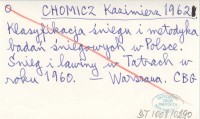 CHOMICZ Kazimiera 1962
Klasyfikacja śniegu i metodyka
badań śniegowych w Polsce.
Śnieg i lawiny w Tatrach w
roku 1960. Warszawa. CBG